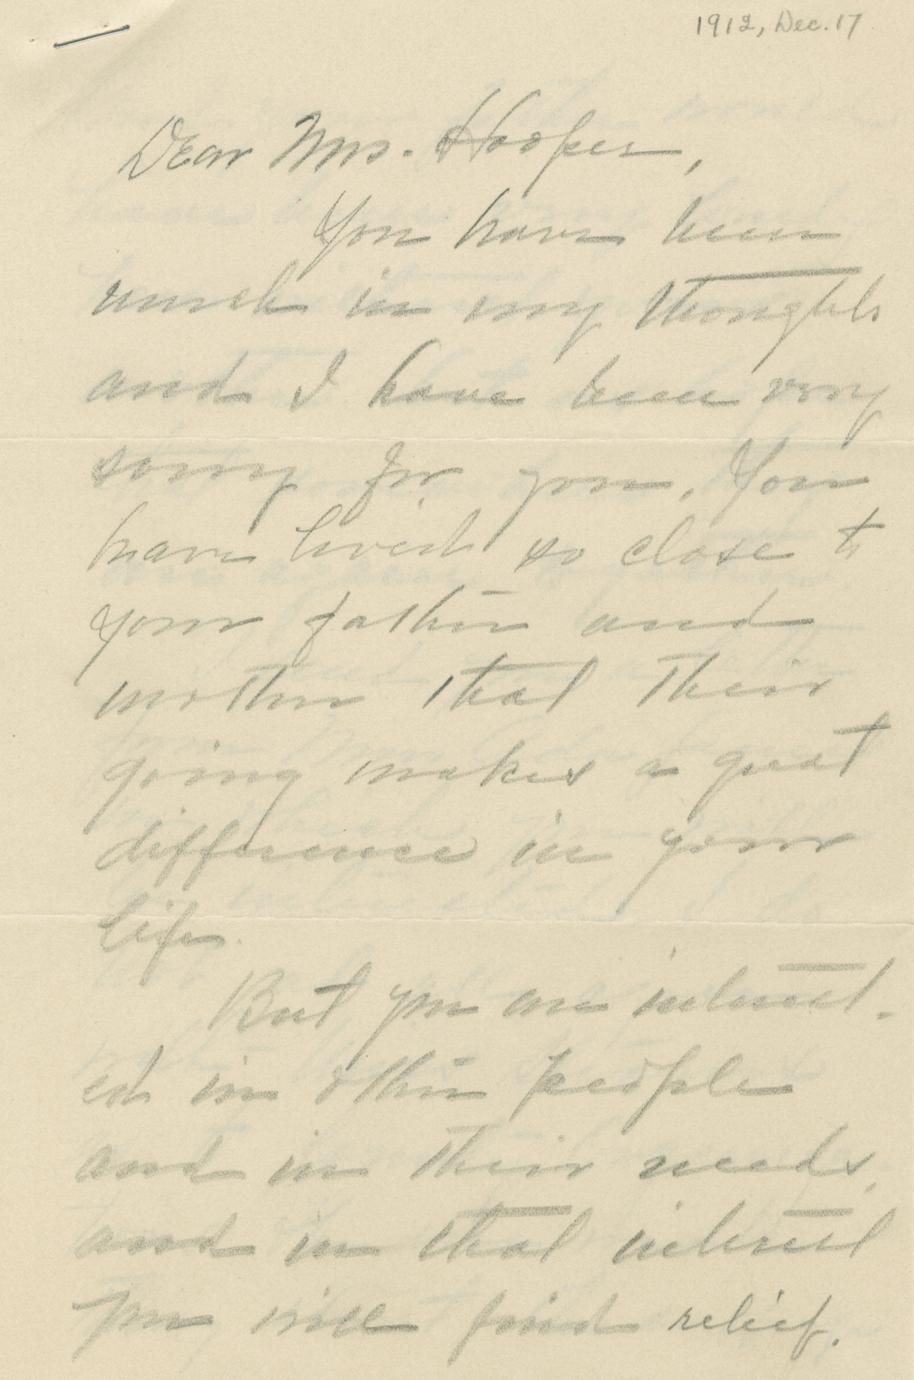 1912, Dec. 17
Dear Mrs. Hooper,
You have been
much in my thoughts
and I have been very
sorry for you. You
have lived so close to
your father and
mother that their
going makes a great
difference in your
life.
But you are interest-
ed in other people
and in their needs,
and in that interest
you will find relief.